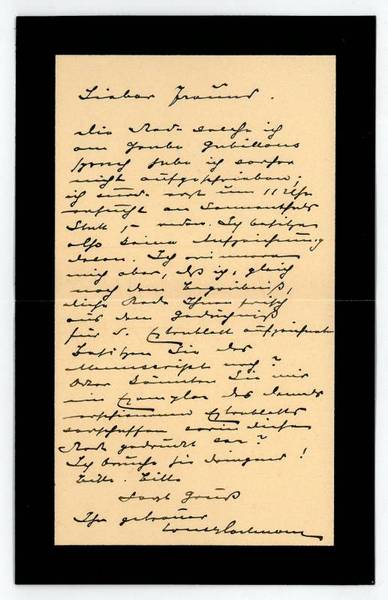 Lieber Freund.
die Rede welche ich
am Grabe
sprach habe ich vorher
nicht aufgeschrieben;
ich wurde erst um 11 Uhr
ersucht an Sonnenthals
Statt zu reden. Ich besitze
also keine Aufzeichnung
davon. Ich erinnere
mich aber, daß ich, gleich
nach dem Begräbniß,
diese Rede Ihnen frisch
aus dem Gedächtniß
für's Extrablatt aufzeichnete
Besitzen Sie das
Manuscript noch?
Oder könnten Sie mir
ein Exemplar des damals
erschienenen Extrablatts
verschaffen worin diese
Rede gedruckt war?
Ich brauche sie dringend!
Bitte. Bitte
Gruß
Ihr getreuer